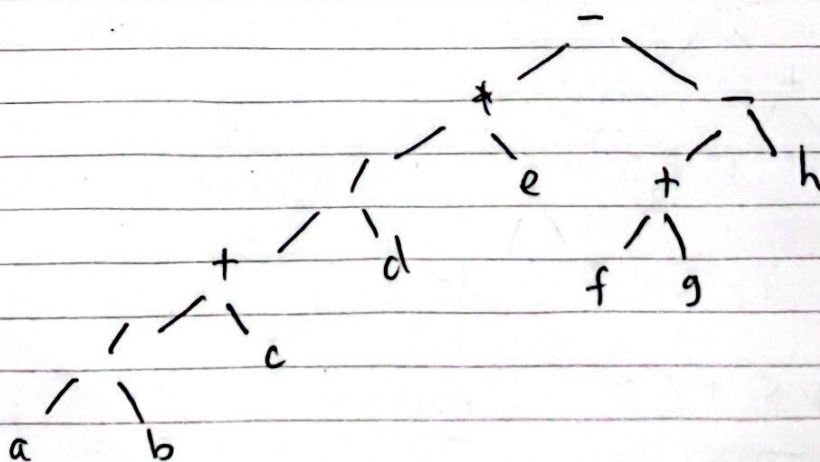 -
* -
/ e + h
+ d f g
/ c
a b